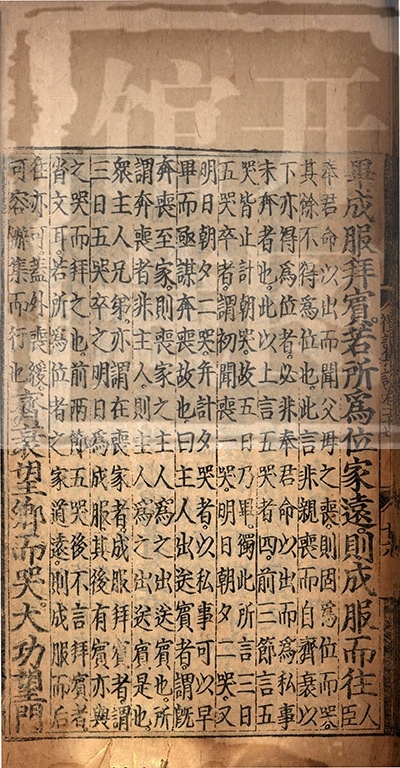 畢成服拜賓若所爲位家遠則成服而往人臣
奉君命以出而聞父母之喪則固爲位而哭
其餘不得爲位也此言非親喪而自齊衰以
下亦得爲位者必非奉君命以出而爲私事
未奔者也此以上言五哭者四前三節言五
哭皆止計朝哭故五日乃畢獨此所言三日
五哭卒者謂初聞喪一哭明日朝夕二哭又
明日朝夕二哭并計夕哭者以私事可以早
畢而亟謀奔喪故也曰主人出送賓者謂旣
奔喪至家則喪家之主人爲之出送賓也所
謂奔喪者非主人則主人爲之出送賓是也
衆主人兄弟亦謂在喪家者成服拜賓者謂
三日五哭卒之明日爲成服其後有賓亦與
之哭而拜之也前兩節五哭後不言拜賓者
省文耳若所爲位者之家道遠則成服而后
往亦可蓋外喪緩
可容辦集而行也
齊衰望鄉而哭大功望門